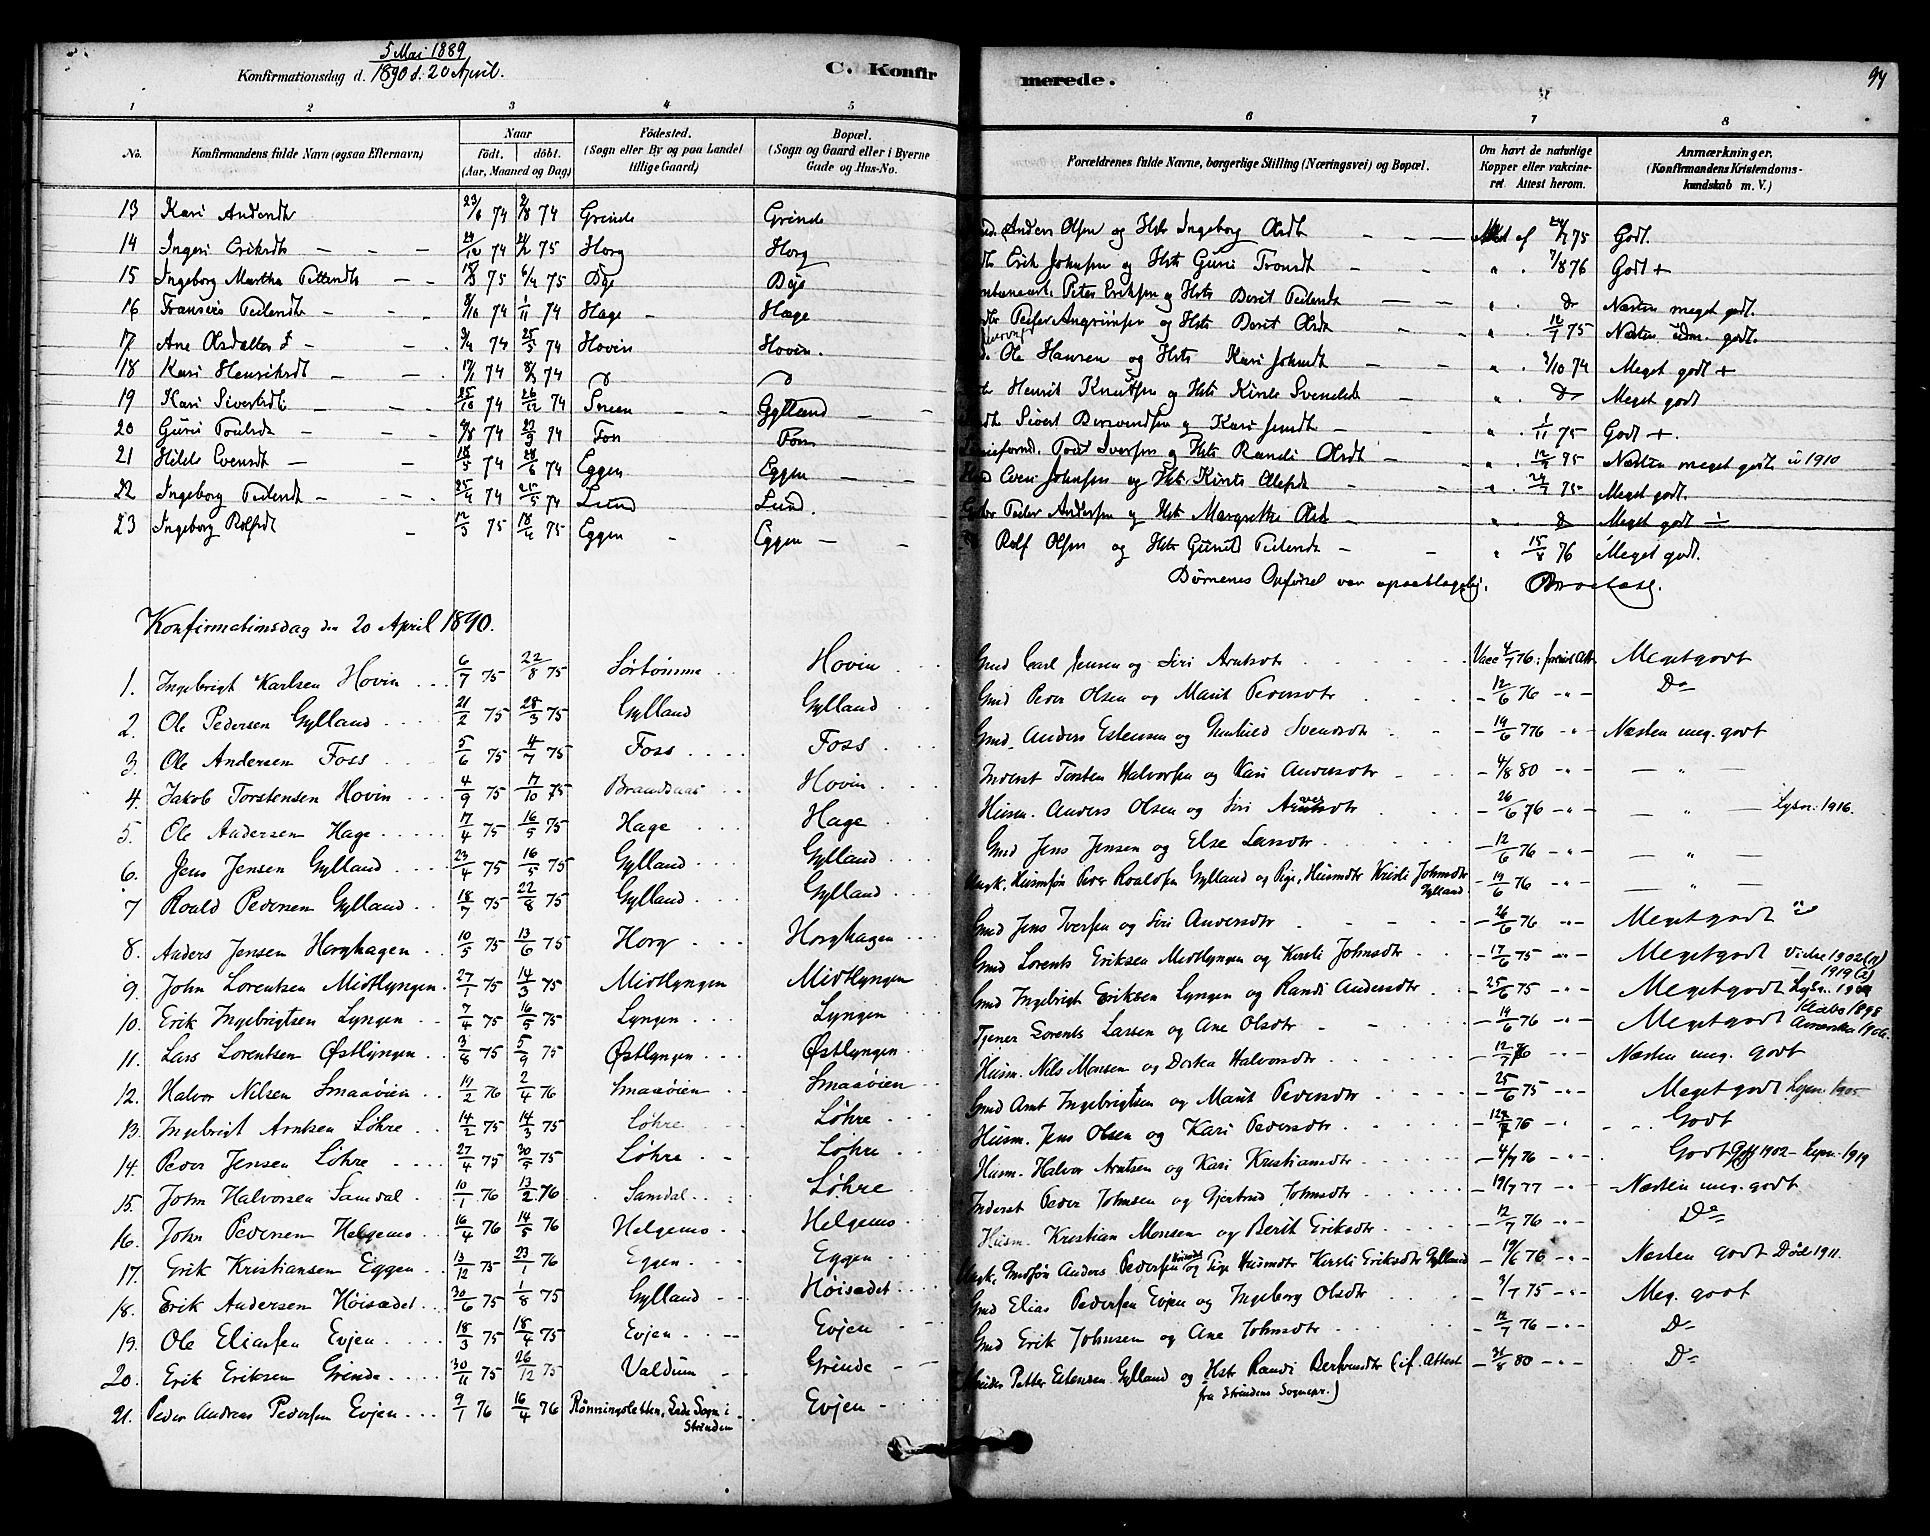 5 Mai 1889
Konfirmationsdag d. 1890 d. 20 April.
C. Konfirmerede.
94
1 2 3 4 5 6 7 8
No. Konfirmandens fulde Navn (ogsaa Efternavn) Naar födt. döbt. (Aar, Maaned og Dag) Födested. (Sogn eller By og paa Landet tillige Gaard) Bopæl. (Sogn og Gaard eller i Byerne Gade og Hus-No. Forældrenes fulde Navne, borgerlige Stilling (Næringsvei) og Bopæl. Om havt de naturlige Kopper eller vakcineret. Attest herom. Anmærkninger. (Konfirmandens Kristendomskundskab m. V.)
13 Kari Andersdt 23/6 74 2/8 74 Grinde Grinde Anders Olsen og Hst Ingeborg Olsdt 75 Godt.
14 Ingeri Eriksdt 75 Horg Horg Erik Johnsen og Hst Guri Tronsdt 7/8 76 Godt +
15 Ingeborg Martha 75 6/4 75 Bye Bye Peter Eriksen og Hst Berit Do Næsten meget godt.
16 74 1/11 74 Hage Hage og Hst Berit Olsdt 12/7 75 Næsten godt.
17 Ane Olsdatter 74 25/5 74 Hovin Hovin. Ole Hansen og Hst Kari Johnsdt 3/10 74 Meget godt +
18 Kari Henriksdt 17/1 74 8/3 74 Do Do Henrik Knutsen og Hst Do Meget godt
19 Kari Sivertsdt 25/10 74 26/12 74 Gylland Sivert og Kari Jensdt 1/11 75 Godt +.
20 Guri 74 27/9 74 Foss Foss Iversen og Hst Randi Olsdt 75 Næsten meget godt. 1910
21 Hilde Evensdt 18/5 74 28/6 74 Eggen Eggen Even Johnsen og Hst 75 Meget godt.
22 Ingeborg 25/4 74 25/5 74 Lund Lund. Andersen og Hst Margrethe Olsd Do Meget godt
23 Ingeborg Rolfsdt 12/3 75 18/4 75 Eggen Eggen Rolf Olsen og Hst 15/8 76 Meget godt.
Børnenes Opførsel var upaaklagelig.
Konfirmationsdag den 20 April 1890.
1. Ingebrigt Karlsen Hovin 6/7 75 22/8 75 Sørtømme Hovin Gmd Carl Jensen og Siri Arntsdt Vacc 4/7 76 Megetgodt
2. Ole Pedersen Gylland 21/2 75 28/3 75 Gylland Gylland Gmd Peder Olsen og Marit Pedersdtr 12/6 76 Do
3. Ole Andersen Foss 5/6 75 4/7 75 Foss Foss Gmd. Anders Estensen og Gunhild Svendsdtr 19/6 76 Næsten meg. godt
4. Jakob Torstensen Hovin 4/9 75 17/10 75 Brandaas Hovin Inderst Torsten Halvorsen og Kari Andersdtr 4/8 80 "
5. Ole Andersen Hage 17/4 75 16/5 75 Hage Hage Husm. Anders Olsen og Siri 26/6 76 " Lysn. 1916.
6. Jens Jensen Gylland 23/4 75 16/5 75 Gylland Gylland Gmd Jens Jensen og Else Larsdtr 12/6 76 "
7 Roald Pedersen Gylland 18/7 75 22/8 75 Gylland Gylland Ungk. Husmsøn Peder Roaldsen Gylland og Pige, Husmdtr Kirsti Johnsdtr Gylland 19/6 76 "
8. Anders Jensen Horghagen 10/5 75 13/6 75 Horg Horghagen Gmd Jens Iversen og Siri Andersdtr 26/6 76 Megetgodt
9. John Lorentsen Midtlyngen 27/1 75 14/3 75 Midtlyngen Midtlyngen Gmd Lorents Eriksen Midtlyngen og Kirsti Johnsdtr 17/6 75 Megetgodt 1902 (1) 1919 (2)
10. Erik Ingebrigtsen Lyngen 7/4 75 16/5 75 Lyngen Lyngen Gmd Ingebrigt Eriksen Lyngen og Randi Andersdtr 25/6 75 Megetgodt
11. Lars Lorentsen Østlyngen 3/8 75 5/9 75 Østlyngen Østlyngen Tjener Lorents Larsen og Ane Olsdtr 19/6 76 Megetgodt Klæbo 1898 Amerika 1906.
12. Halvor Nilsen Smaaøien 14/2 76 2/4 76 Smaaøien Smaaøien Husm. Nils Monsen og Dortea Halvorsdtr 12/7 76 Næsten meg. godt
13. Ingebrigt Arntsen Løhre 14/2 75 14/3 75 Løhre Løhre Gmd Arnt Ingebrigtsen og Marit Pedersdtr 25/6 75 Megetgodt Lysn. 1905
14. Peder Jensen Løhre 27/4 75 30/5 75 Løhre Løhre Husm. Jens Olsen og Kari Pedersdtr 76 Godt
15. John Halvorsen Samdal 10/1 76 13/2 76 Samdal Løhre Husm. Halvor Arntsen og Kari Kristiansdtr 4/7 76 Godt 1902 - Lysn. 1919
16. John Pedersen Helgemo 16/4 76 14/5 76 Helgemo Helgemo Inderst Peder Johnsen og Gjertrud Johnsdtr 19/7 77 Næsten meg. godt
17. Erik Kristiansen Eggen 13/12 75 23/1 76 Eggen Eggen Husm. Kristian Monsen og Berit Eriksdtr 12/7 76 Do
18. Erik Andersen Høisædet 30/6 75 1/8 75 Gylland Høisædet Ungk. Gmdsøn Anders Pedersen og Pige Husmdtr Kirsti Eriksdtr Gylland 19/6 76 Næsten godt Død 1911.
19. Ole Eliassen Evjen 18/3 75 18/4 75 Evjen Evjen Gmd Elias Pedersen Evjen og Ingeborg Olsdtr 3/7 75 Meg. godt
20. Erik Eriksen Grinde 30/11 75 26/12 75 Valdum Grinde Gmd Erik Johnsen og Ane Johnsdtr 12/7 76 Do
21. Peder Andreas Pedersen Evjen 9/1 76 16/4 76 Rønningsletten, Lade Sogn i Strinden Evjen Petter Estensen Gylland og Hstr Randi (if. Attest fra Strindens Sognepr.) 31/8 80 Do